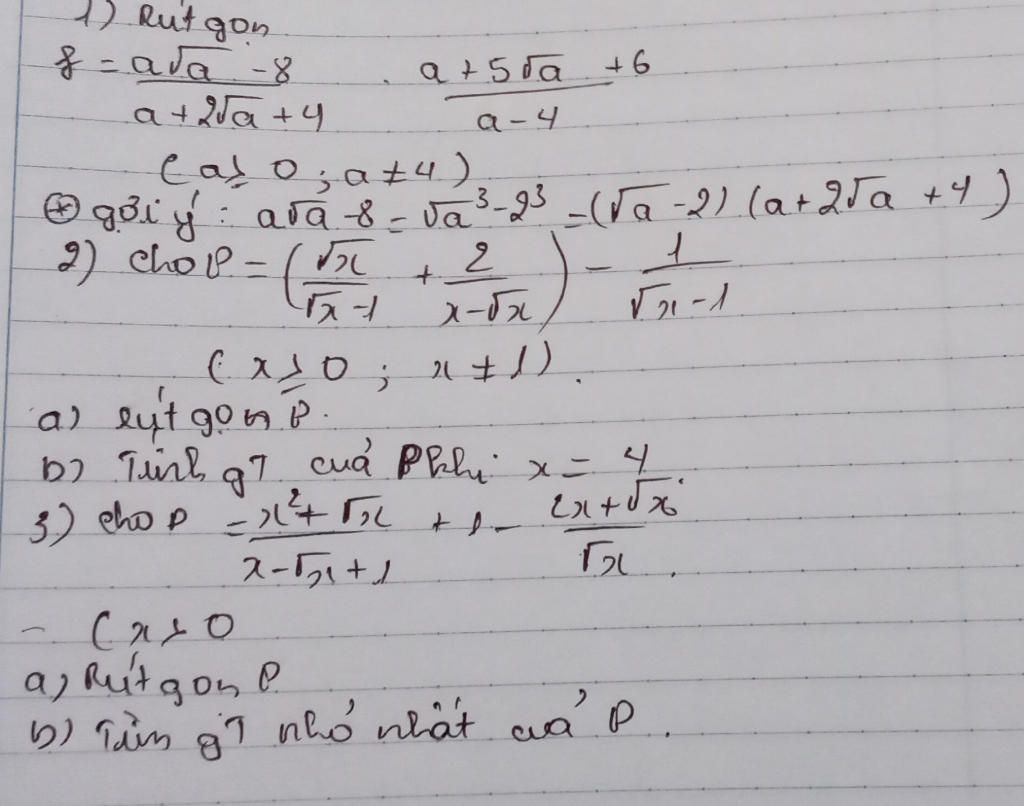 1) Rút gọn
8 = (a√a - 8)/(a + 2√a + 4) . (a + 5√a + 6)/(a - 4)
(a ≥ 0 ; a ≠ 4)
⊛ gợi ý : a√a - 8 = √a³ - 2³ = (√a - 2) (a + 2√a + 4)
2) cho P = (√x/(√x - 1) + 2/(x - √x)) - 1/(√x - 1)
(x ≥ 0 ; x ≠ 1).
a) rút gọn P.
b) Tính gT của P khi x = 4
3) cho P = (x² + √x)/(x - √x + 1) + 1 - (2x + √x)/√x.
- (x > 0
a) Rút gọn P
b) Tìm gT nhỏ nhất của P.